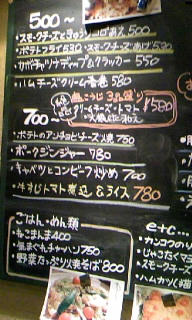 500～
・スモークチーズときゅうりのゴロあえ 500
・ポテトフライ 530 スモークチーズあげ 530
・カボチャッナディップ&クラッカー 550
・ハムチーズクリーム春巻 580
クリームチーズ・トマト
¥580
700～
・ポテトのアンチョビチーズ焼 750
・ポークジンジャー 780
・キャベツとコンビーフ炒め 700
・牛すじトマト煮込 &ライス 780
ごはん・めん類
・ねこまんま 400
・気まぐれチャーハン 750
・野菜たっぷり焼そば 800
etc...
・カンコクのり
・じゃこたくマヨ
・スモークチーズ
・ハムカツ